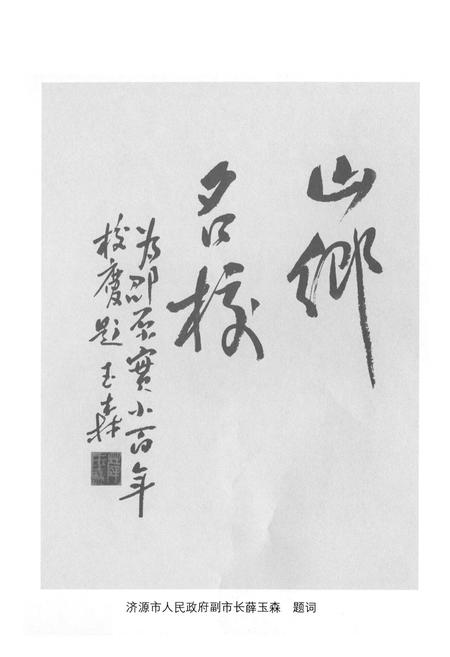 山鄉
名校
为邵原實小百年
校慶題 玉森
济源市人民政府副市长薛玉森　题词